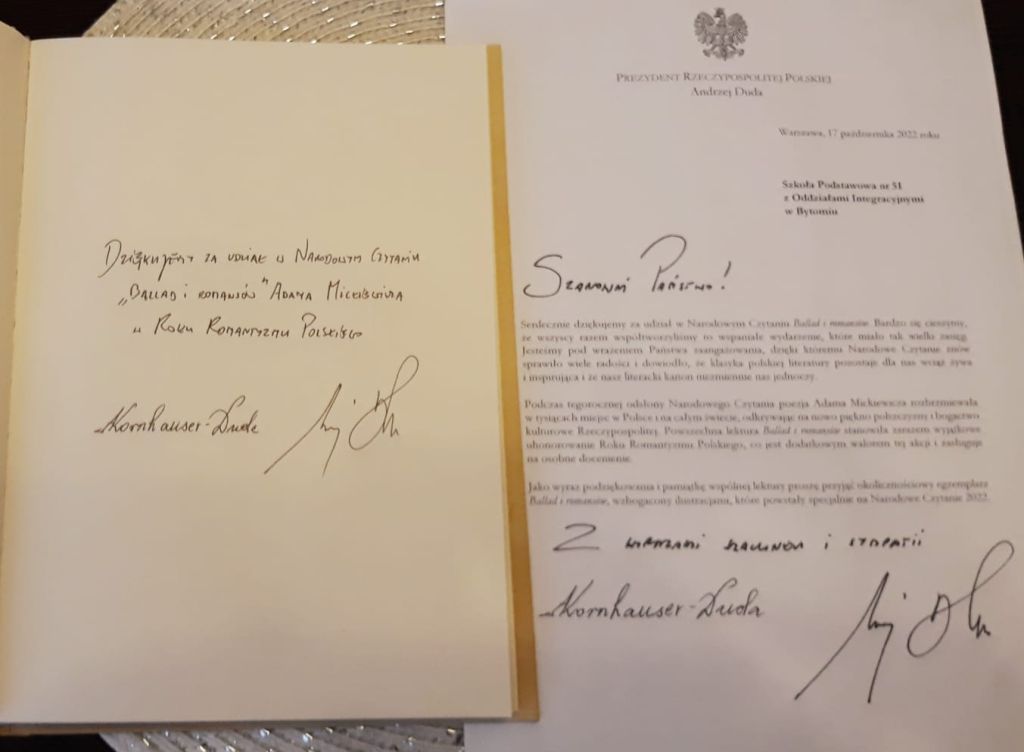 Dziękujemy za udział w Narodowym Czytaniu
„Ballad i romansów" Adama Mickiewicza
w Roku Romantyzmu Polskiego
Kornhauser-Duda
PREZYDENT RZECZYPOSPOLITEJ POLSKIEJ
Andrzej Duda
Warszawa, 17 października 2022 roku
Szkoła Podstawowa nr 51
z Oddziałami Integracyjnymi
w Bytomiu
Szanowni Państwo!
Serdecznie dziękujemy za udział w Narodowym Czytaniu Ballad i romansów. Bardzo się cieszymy,
że wszyscy razem współtworzyliśmy to wspaniałe wydarzenie, które miało tak wielki zasięg.
Jesteśmy pod wrażeniem Państwa zaangażowania, dzięki któremu Narodowe Czytanie znów
sprawiło wiele radości i dowiodło, że klasyka polskiej literatury pozostaje dla nas wciąż żywa
i inspirująca i że nasz literacki kanon niezmiennie nas jednoczy.
Podczas tegorocznej odsłony Narodowego Czytania poezja Adama Mickiewicza rozbrzmiewała
w tysiącach miejsc w Polsce i na całym świecie, odkrywając na nowo piękno polszczyzny i bogactwo
kulturowe Rzeczypospolitej. Powszechna lektura Ballad i romansów stanowiła zarazem wyjątkowe
uhonorowanie Roku Romantyzmu Polskiego, co jest dodatkowym walorem tej akcji i zasługuje
na osobne docenienie.
Jako wyraz podziękowania i pamiątkę wspólnej lektury proszę przyjąć okolicznościowy egzemplarz
Ballad i romansów, wzbogacony ilustracjami, które powstały specjalnie na Narodowe Czytanie 2022.
Z wyrazami szacunku i sympatii
Kornhauser-Duda